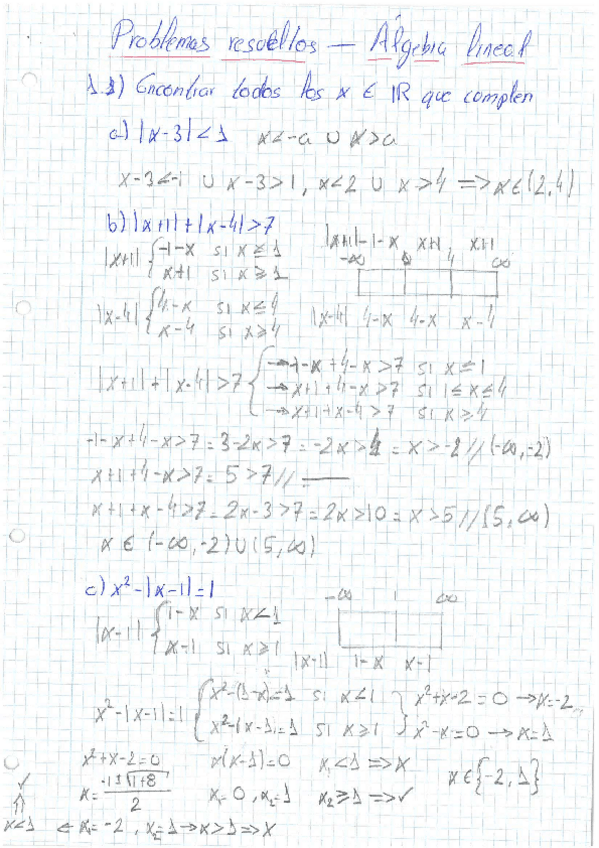 Problemas resueltos — Álgebra lineal
1.1) Encontrar todos los x ∈ IR que cumplen
a) |x-3|<1 x<-a ∪ x>a
x-3<-1 ∪ x-3>1, x<2 ∪ x>4 => x∈(2,4)
b) |x+1|+|x-4|>7
|x+1| { -1-x si x≤1
x+1 si x≥1
|x+1| -1-x x+1 x+1
-∞ 4 ∞
|x-4| { 4-x si x≤4
x-4 si x≥4
|x-4| 4-x 4-x x-4
|x+1|+|x-4|>7 { → -1-x+4-x>7 si x≤1
→ x+1+4-x>7 si 1≤x≤4
→ x+1+x-4>7 si x≥4
-1-x+4-x>7 = 3-2x>7 = -2x>4 = x>-2 // (-∞,-2)
x+1+4-x>7 = 5>7 // ——
x+1+x-4>7 = 2x-3>7 = 2x>10 = x>5 // (5,∞)
x ∈ (-∞,-2)∪(5,∞)
c) x²-|x-1|=1
|x-1| { 1-x si x<1
x-1 si x≥1
-∞ 1 ∞
|x-1| 1-x x-1
x²-|x-1|=1 { x²-(1-x)=1 si x<1 } x²+x-2=0 → x=-2
x²-(x-1)=1 si x≥1 } x²-x=0 → x=1
x²+x-2=0 x(x-1)=0 x₁<1 => X
x= -1±√1+8 / 2 x₁=0, x₂=1 x₂≥1 => ✓
x∈{-2,1}
✓
⇑
x<1 ← x₁=-2, x₂=1 → x>1 => X